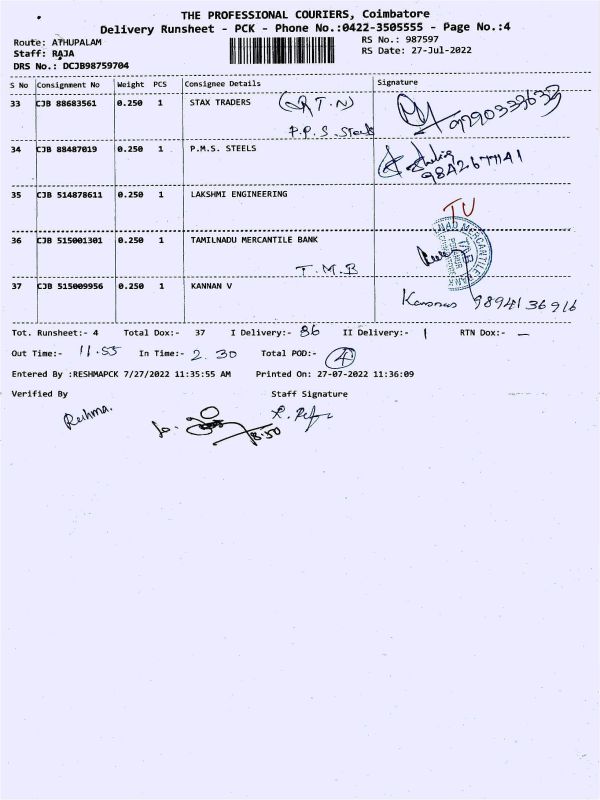 THE PROFESSIONAL COURIERS, Coimbatore
Delivery Runsheet - PCK - Phone No.:0422-3505555 - Page No.:4
Route: ATHUPALAM RS No.: 987597
Staff: RAJA RS Date: 27-Jul-2022
DRS No.: DCJB98759704
S No Consignment No Weight PCS Consignee Details Signature
33 CJB 88683561 0.250 1 STAX TRADERS (RTN)
P.P.S. Steels
34 CJB 88487019 0.250 1 P.M.S. STEELS
35 CJB 514878611 0.250 1 LAKSHMI ENGINEERING
TU
36 CJB 515001301 0.250 1 TAMILNADU MERCANTILE BANK
T.M.B
37 CJB 515009956 0.250 1 KANNAN V
9894136916
Tot. Runsheet:- 4 Total Dox:- 37 I Delivery:- 86 II Delivery:- 1 RTN Dox:- —
Out Time:- 11.55 In Time:- 2.30 Total POD:- 4
Entered By :RESHMAPCK 7/27/2022 11:35:55 AM Printed On: 27-07-2022 11:36:09
Verified By Staff Signature
Reshma.
8.50